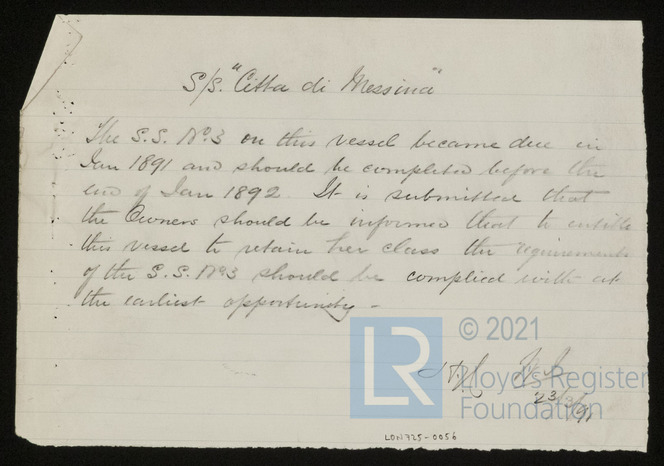 S/S. "Citta di Messina"
The S.S. No.3 on this vessel became due in
Jan 1891 and should be completed before the
end of Jan 1892. It is submitted that
the Owners should be informed that to entitle
this vessel to retain her class the requirements
of the S.S. No3 should be complied with at
the earliest opportunity -
© 2021
LR
Lloyd's Register
Foundation
23/3/91
LON725-0056